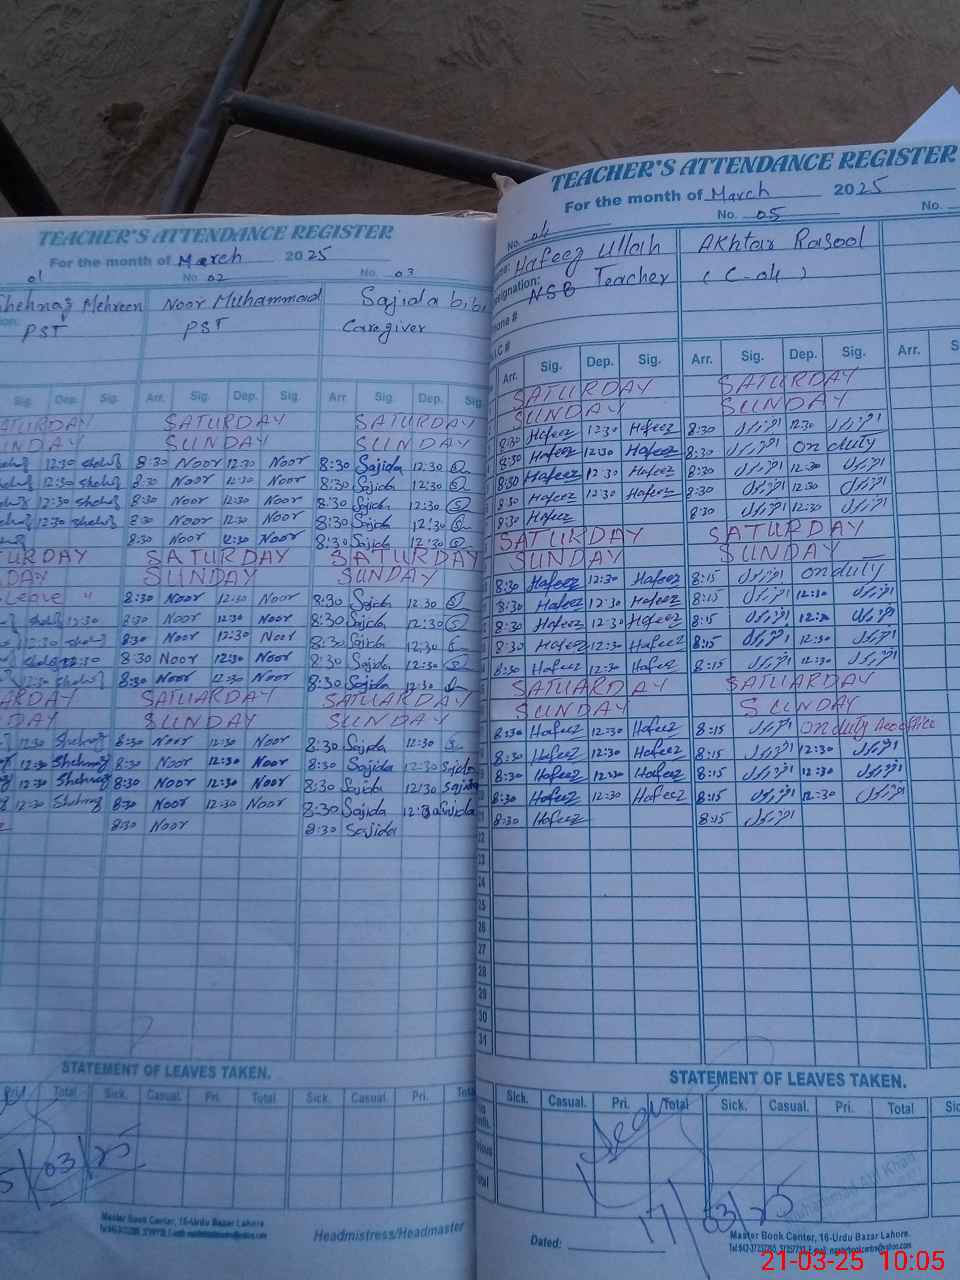 TEACHER'S ATTENDANCE REGISTER
For the month of March 2025
01 No. 02 No. 03
Shehnaz Mehreen Noor Muhammad Sajida bibi
PST PST Caregiver
Sig. Dep. Sig. Arr. Sig. Dep. Sig. Arr. Sig. Dep. Sig.
SATURDAY SATURDAY SATURDAY
SUNDAY SUNDAY SUNDAY
12:30 8:30 Noor 12:30 Noor 8:30 Sajida 12:30
12:30 8:30 Noor 12:30 Noor 8:30 Sajida 12:30
12:30 8:30 Noor 12:30 Noor 8:30 Sajida 12:30
12:30 8:30 Noor 12:30 Noor 8:30 Sajida 12:30
8:30 Noor 12:30 Noor 8:30 Sajida 12:30
URDAY SATURDAY SATURDAY
DAY SUNDAY SUNDAY
Leave " 8:30 Noor 12:30 Noor 8:30 Sajida 12:30
12:30 8:30 Noor 12:30 Noor 8:30 Sajida 12:30
12:30 8:30 Noor 12:30 Noor 8:30 Sajida 12:30
12:30 8:30 Noor 12:30 Noor 8:30 Sajida 12:30
12:30 8:30 Noor 12:30 Noor 8:30 Sajida 12:30
ARDAY SATUARDAY SATUARDAY
DAY SUNDAY SUNDAY
12:30 Shehnaz 8:30 Noor 12:30 Noor 8:30 Sajida 12:30
12:30 Shehnaz 8:30 Noor 12:30 Noor 8:30 Sajida 12:30 Sajida
12:30 Shehnaz 8:30 Noor 12:30 Noor 8:30 Sajida 12:30 Sajida
12:30 Shehnaz 8:30 Noor 12:30 Noor 8:30 Sajida 12:30 Sajida
8:30 Noor 8:30 Sajida
STATEMENT OF LEAVES TAKEN.
Pri Total Sick. Casual. Pri. Total Sick. Casual. Pri. Total
/03/25
Master Book Center, 16-Urdu Bazar Lahore.
Headmistress/Headmaster
TEACHER'S ATTENDANCE REGISTER
For the month of March 2025
No. 04 No. 05 No.
Hafeez Ullah Akhtar Rasool
esignation: NSB Teacher (C-04)
hone #
I.C #
Arr. Sig. Dep. Sig. Arr. Sig. Dep. Sig. Arr. S
SATURDAY SATURDAY
SUNDAY SUNDAY
8:30 Hafeez 12:30 Hafeez 8:30 12:30
8:30 Hafeez 12:30 Hafeez 8:30 on duty
8:30 Hafeez 12:30 Hafeez 8:30 12:30
8:30 Hafeez 12:30 Hafeez 8:30 12:30
8:30 Hafeez 8:30 12:30
SATURDAY SATURDAY
SUNDAY SUNDAY
8:30 Hafeez 12:30 Hafeez 8:15 on duty
8:30 Hafeez 12:30 Hafeez 8:15 12:30
8:30 Hafeez 12:30 Hafeez 8:15 12:30
8:30 Hafeez 12:30 Hafeez 8:15 12:30
8:30 Hafeez 12:30 Hafeez 8:15 12:30
SATUARDAY SATUARDAY
SUNDAY SUNDAY
8:30 Hafeez 12:30 Hafeez 8:15 on duty
8:30 Hafeez 12:30 Hafeez 8:15 12:30
8:30 Hafeez 12:30 Hafeez 8:15 12:30
8:30 Hafeez 12:30 Hafeez 8:15 12:30
8:30 Hafeez 8:15
22
23
24
25
26
27
28
29
30
31
STATEMENT OF LEAVES TAKEN.
Sick. Casual. Pri. Total Sick. Casual. Pri. Total Sic
17/03/25
Muhammad Atif Khan
Dated:
Master Book Center, 16-Urdu Bazar Lahore.
21-03-25 10:05